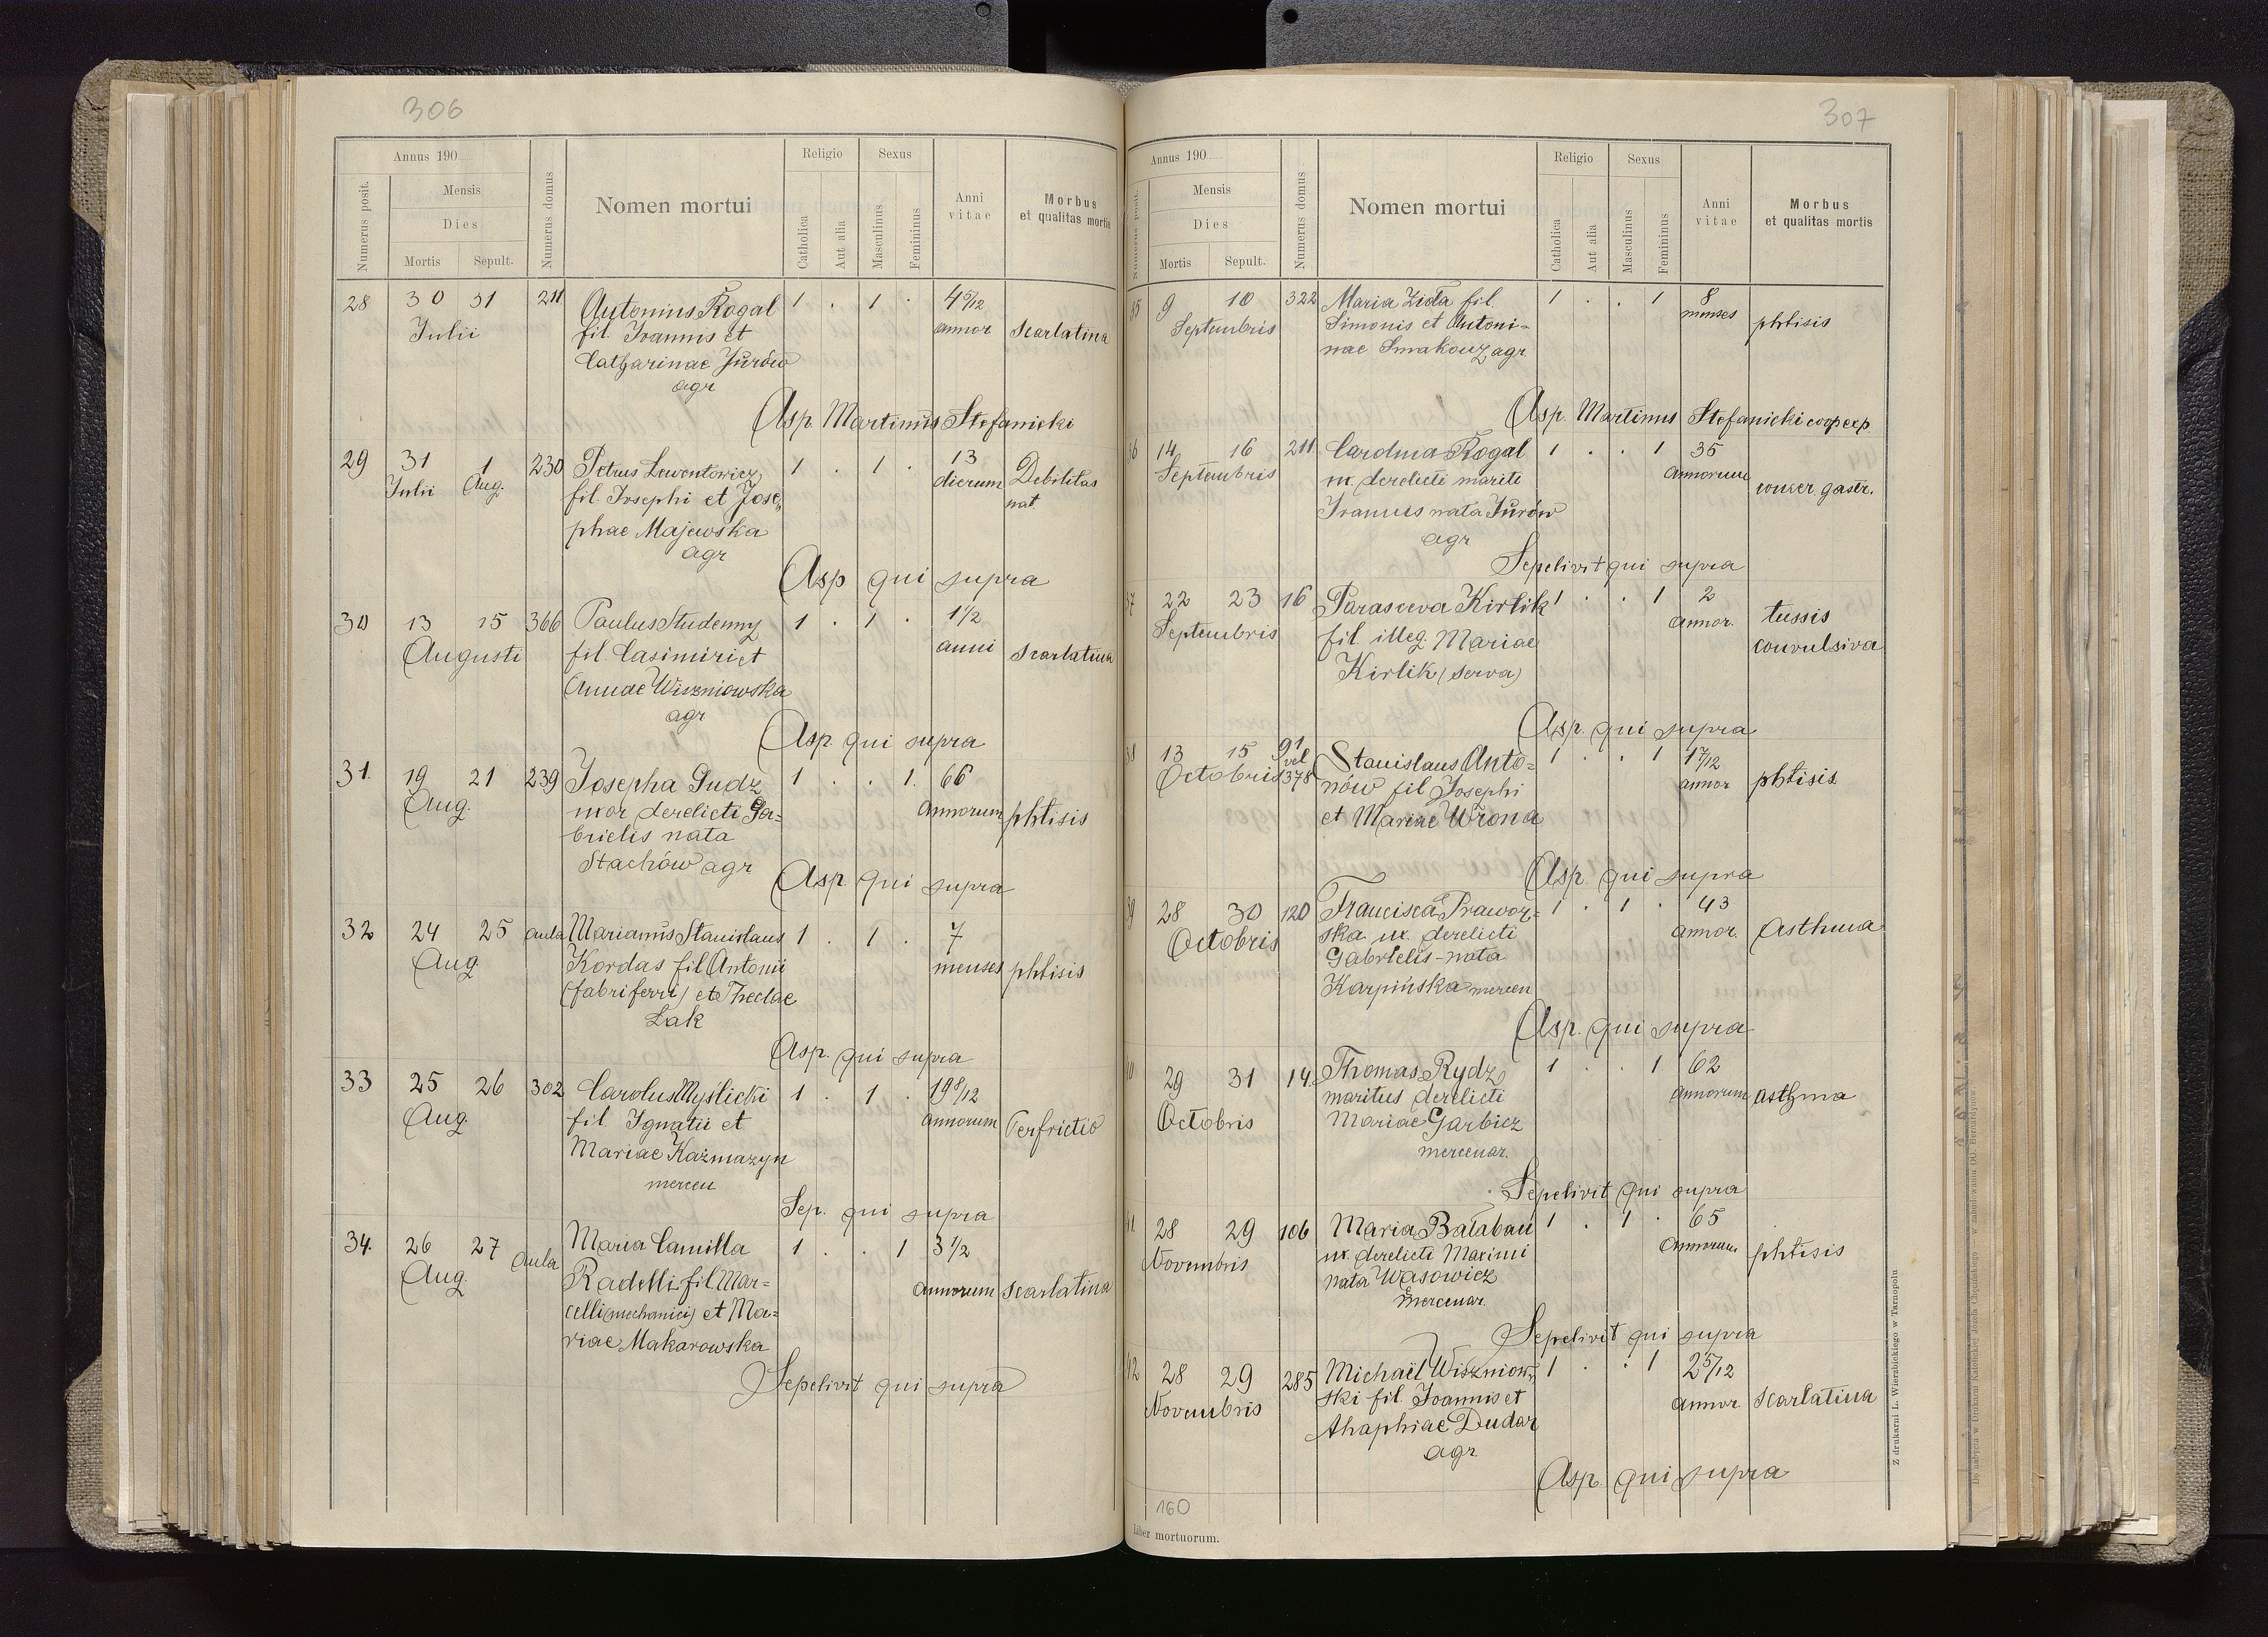 306
Annus 190
Numerus posit.
Mensis
Dies
Mortis Sepult.
Numerus domus
Nomen mortui
Religio
Catholica
Aut alia
Sexus
Masculinus
Femininus
Anni
vitae
Morbus
et qualitas mortis
28 30 31 211 Antonius Rogal 1 . 1 . 4 5/12
Julii fil. Joannis et annor scarlatina
Catharinae Jurów
agr
Asp. Martinus Stefanicki
29 31 1 230 Petrus Lewentowicz 1 . 1 . 13
Julii Aug. fil. Josephi et Jose„ dierum Debilitas
phae Majewska nat
agr
Asp qui supra
30 13 15 366 Paulus Studenny 1 . 1 . 1 1/2
Augusti fil. Casimiri et anni scarlatina
Annae Wiszniowska
agr
Asp. qui supra
31. 19 21 239 Josepha Gudz 1 . . 1. 66
Aug. uxor derelicti Ga= annorum phtisis
brielis nata
Stachów agr
Asp. qui supra
32 24 25 aula Marianus Stanislaus 1 . 1 . 7
Aug. Kordas fil Antonii menses phtisis
(fabri ferri) et Theclae
Łak
Asp. qui supra
33 25 26 302 Carolus Myślicki 1 . 1 . 19 8/12
Aug. fil. Ignatii et annorum Perfrictio
Mariae Kaźmazyn
mercen
Sep. qui supra
34. 26 27 Aula Maria Camilla 1 . . 1 3 1/2
Aug. Radelli fil. Mar= annorum scarlatina
celli (mechanici) et Ma=
riae Makarowska
Sepelivit qui supra
307
Annus 190
Numerus posit.
Mensis
Dies
Mortis Sepult.
Numerus domus
Nomen mortui
Religio
Catholica
Aut alia
Sexus
Masculinus
Femininus
Anni
vitae
Morbus
et qualitas mortis
35 9 10 322 Maria Zista fil. 1 . . 1 8
Septembris Simonis et Antoni= menses phtisis
nae Smakouz agr.
Asp. Martinus Stefanicki coop exp.
36 14 16 211 Carolina Rogal 1 . . 1 35
Septembris ux. derelicti mariti annorum gastr.
Joannis nata Jurów
agr
Sepelivit qui supra
37 22 23 16 Parasceva Kirlik 1 . . 1 2
Septembris fil. illeg. Mariae annor. tussis
Kirlik (serva) convulsiva
Asp. qui supra
38 13 15 91 vel 378 Stanislaus Anto= 1 . . 1 1 7/12
Octobris nów fil Josephi annor phtisis
et Mariae Wrona
Asp. qui supra
39 28 30 120 Francisca Prawor= 1 . 1 . 43
Octobris ska ux. derelicti annor. Asthma
Gabrielis - nata
Karpińska mercen
Asp. qui supra
40 29 31 14. Thomas Rydz 1 . . 1 62
Octobris maritus derelicti annorum asthma
Mariae Garbicz
mercenar.
Sepelivit qui supra
41 28 29 106 Maria Bałaban 1 . 1 . 65
Novembris ux. derelicti Maximi annorum phtisis
nata Wasowicz
mercenar.
Sepelivit qui supra
42 28 29 285 Michaël Wiszniow„ 1 . . 1 2 5/12
Novembris ski fil. Joannis et annor scarlatina
Ahaphiae Dudar
agr.
Asp qui supra
160
Liber mortuorum.
Z drukarni L. Wierzbickiego w Tarnopolu